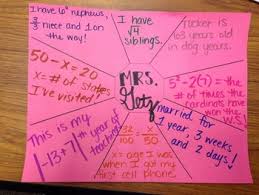 I have 6² nephews,
niece and 1 on
the way!
I have
√4
siblings.
Tucker is
63 years old
in dog years.
50 - x = 20
x = # of states
I've visited!
MRS.
Getz
5² - 2(7) = the
# of times the
cardinals have
won the W.S.
This is my
|-13+7|th year of
teaching
32/100 = x/50
x = age I was
when I got my
first cell phone
married for
1 year, 3 weeks
and 2 days!